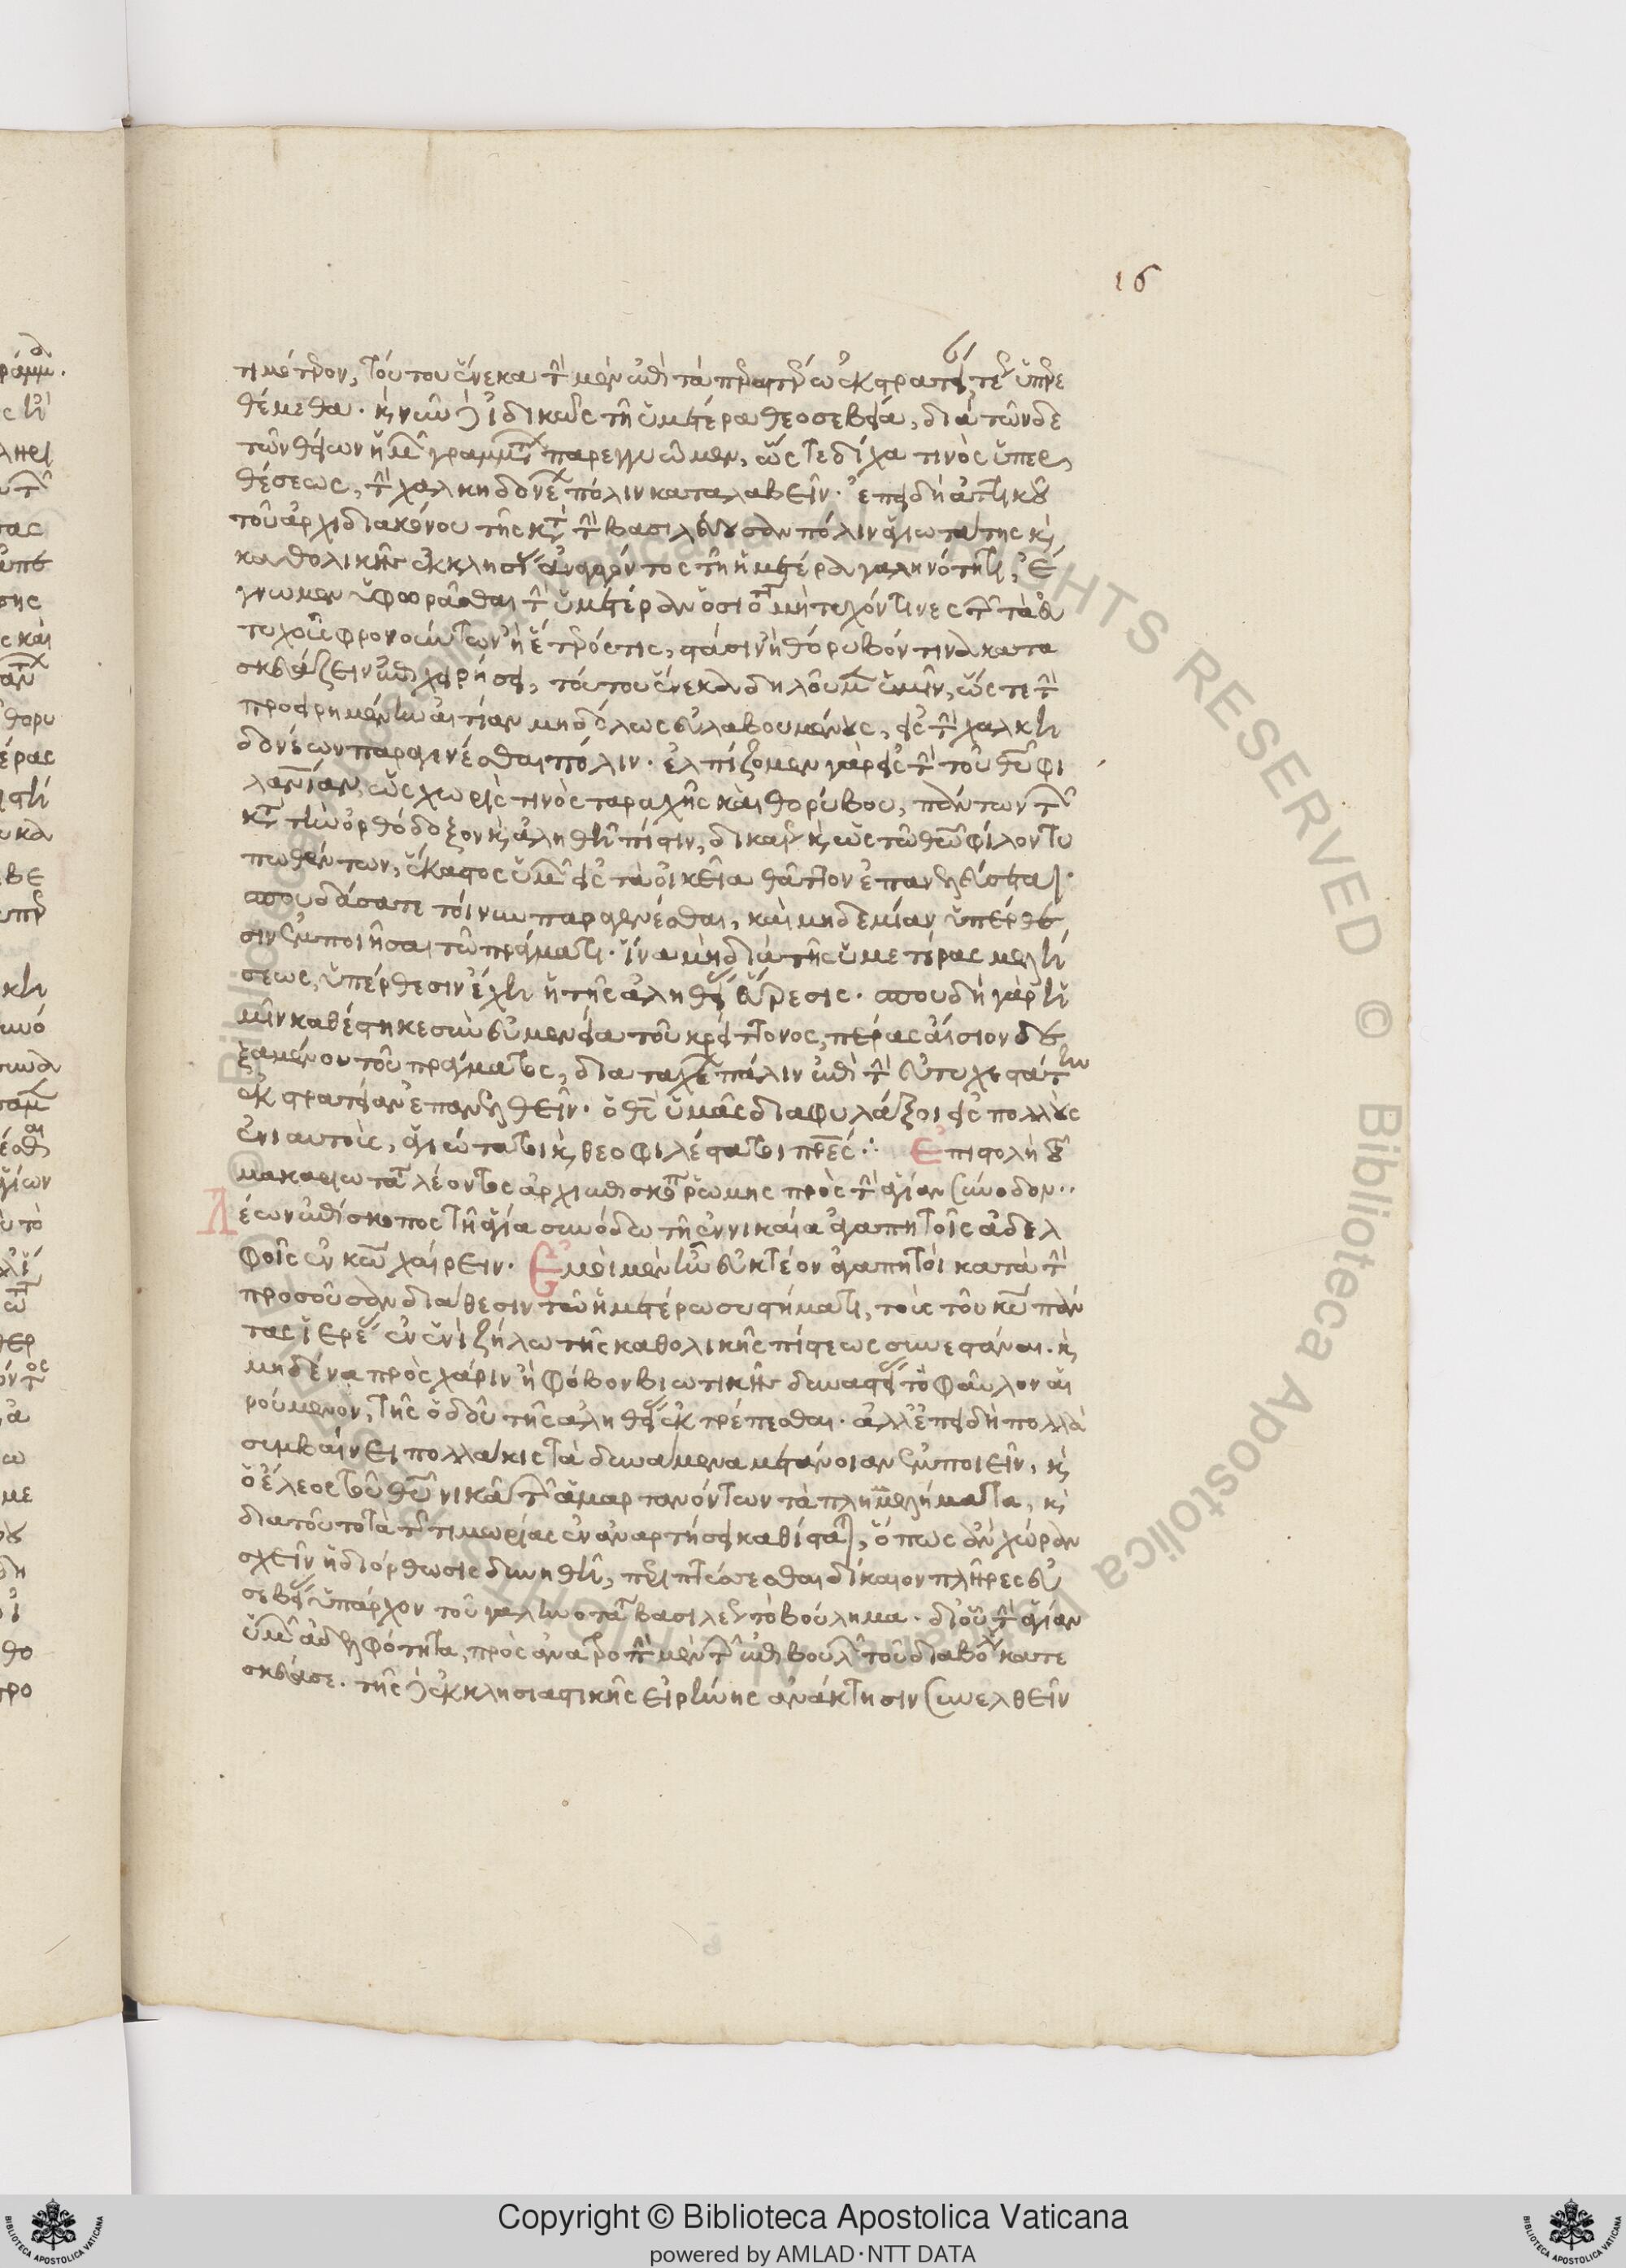 16
τιμότερον, τούτου ἕνεκα τὴν μὲν ἐπὶ τὰ πράγματα ἐκστρατείαν τέως ὑπερε
θέμεθα. καὶ νῦν δὲ ἰδικῶς τῇ ὑμετέρα θεοσεβεία, διὰ τῶνδε
τῶν θείων ἡμῶν γραμμάτων παρεγγυῶμεν, ὥς τε δίχα τινὸς ὑπερ
θέσεως, τὴν χαλκηδονέων πόλιν καταλαβεῖν. ἐπειδὴ ἀττικοῦ
τοῦ ἀρχιδιακόνου τῆς κατὰ τὴν βασιλεύουσαν πόλιν ἁγιωτάτης καὶ
καθολικῆς ἐκκλησίας ἀναφέροντος τῇ ἡμετέρα γαληνότητι, ἔ
γνωμεν ὑφορᾶσθαι τὴν ὑμετέραν ὁσιότητα μή τι γε ὄντινες τῶν τὰ εὐ
τυχοῦς φρονούντων ἢ ἕτερός τις, στάσιν ἢ θόρυβόν τινα κατα
σκευάζειν ἐπιχειρήσει, τούτου ἕνεκα δηλοῦμεν ὑμῖν, ὥς τε τὴν
προειρημένην αἰτίαν μηδόλως εὐλαβουμένους, εἰς τὴν χαλκη
δονέων παραγινέσθαι πόλιν. ἐλπίζομεν γὰρ εἰς τὴν τοῦ θεοῦ φι
λανθρωπίαν, ὡς χωρὶς τινὸς ταραχῆς καὶ θορύβου, πάντων τῶν
κατὰ τὴν ὀρθόδοξον καὶ ἀληθῆ πίστιν, δικαίως καὶ ὡς τῶ θεῶ φίλον τυ
πωθέντων, ἕκαστος ὑμῶν εἰς τὰ οἰκεῖα θᾶττον ἐπανελεύσεται.
σπουδάσατε τοίνυν παραγενέσθαι, καὶ μηδεμίαν ὑπέρθε
σιν ἐμποιῆσαι τῶ πράγματι. ἵνα μὴ διὰ τῆς ὑμετέρας μελλή
σεως, ὑπέρθεσιν ἔχη ἡ τῆς ἀληθείας εὕρεσις. σπουδὴ γὰρ ἡ
μῖν καθέστηκε σὺν εὐμενεία τοῦ κρείττονος, πέρας αἴσιον δε
ξαμένου τοῦ πράγματος, διὰ ταχέων πάλιν ἐπὶ τὴν εὐτυχεστάτην
ἐκστρατείαν ἐπανελθεῖν. ὁ θεὸς ὑμᾶς διαφυλάξοι εἰς πολλοὺς
ἐνιαυτοὺς, ἁγιώτατοι καὶ θεοφιλέστατοι πατέρες ∴ Ἐπιστολὴ τοῦ
μακαριωτάτου λέοντος ἀρχιεπισκόπου ῥώμης πρὸς τὴν ἁγίαν σύνοδον..
Λέων ἐπίσκοπος τῇ ἁγία συνόδω τῇ ἐν νικαία ἀγαπητοῖς ἀδελ
φοῖς ἐν κυρίω χαίρειν. Ἐμοὶ μὲν ἦν εὐκτέον ἀγαπητοὶ κατὰ τὴν
προσοῦσαν διάθεσιν τῶ ἡμετέρω συστήματι, τοὺς τοῦ κυρίου πάν
τας ἱερεῖς ἐν ἑνὶ ζήλω τῆς καθολικῆς πίστεως συνεστάναι. καὶ
μηδένα πρὸς χάριν ἢ φόβον βιωτικῆς δυναστείας τὸ φαῦλον αἱ
ρούμενον, τῆς ὁδοῦ τῆς ἀληθείας ἐκτρέπεσθαι. ἀλλ' ἐπειδὴ πολλὰ
συμβαίνει πολλάκις τὰ δυνάμενα μετάνοιαν ἐμποιεῖν, καὶ
ὁ ἔλεος τοῦ θεοῦ νικᾶ τῶν ἁμαρτανόντων τὰ πλημμελήματα, καὶ
διὰ τοῦτο τὰ τῆς τιμωρίας ἐν ἀναρτήσει καθίσταται, ὅπως ἂν χώραν
σχεῖν ἡ διόρθωσις δυνηθῆ, περιπτύσσεσθαι δίκαιον πλῆρες εὐ
σεβείας ὑπάρχον τοῦ γαληνοτάτου βασιλέως τὸ βούλημα. δι' οὗ τὴν ἁγίαν
ὑμῶν ἀδελφότητα, πρὸς ἀνατροπὴν μὲν τῶν ἐπιβουλῶν τοῦ διαβόλου κατε
σκεύασε. τῆς δὲ ἐκκλησιαστικῆς εἰρήνης ἀνάκτησιν συνελθεῖν
Copyright © Biblioteca Apostolica Vaticana
powered by AMLAD·NTT DATA